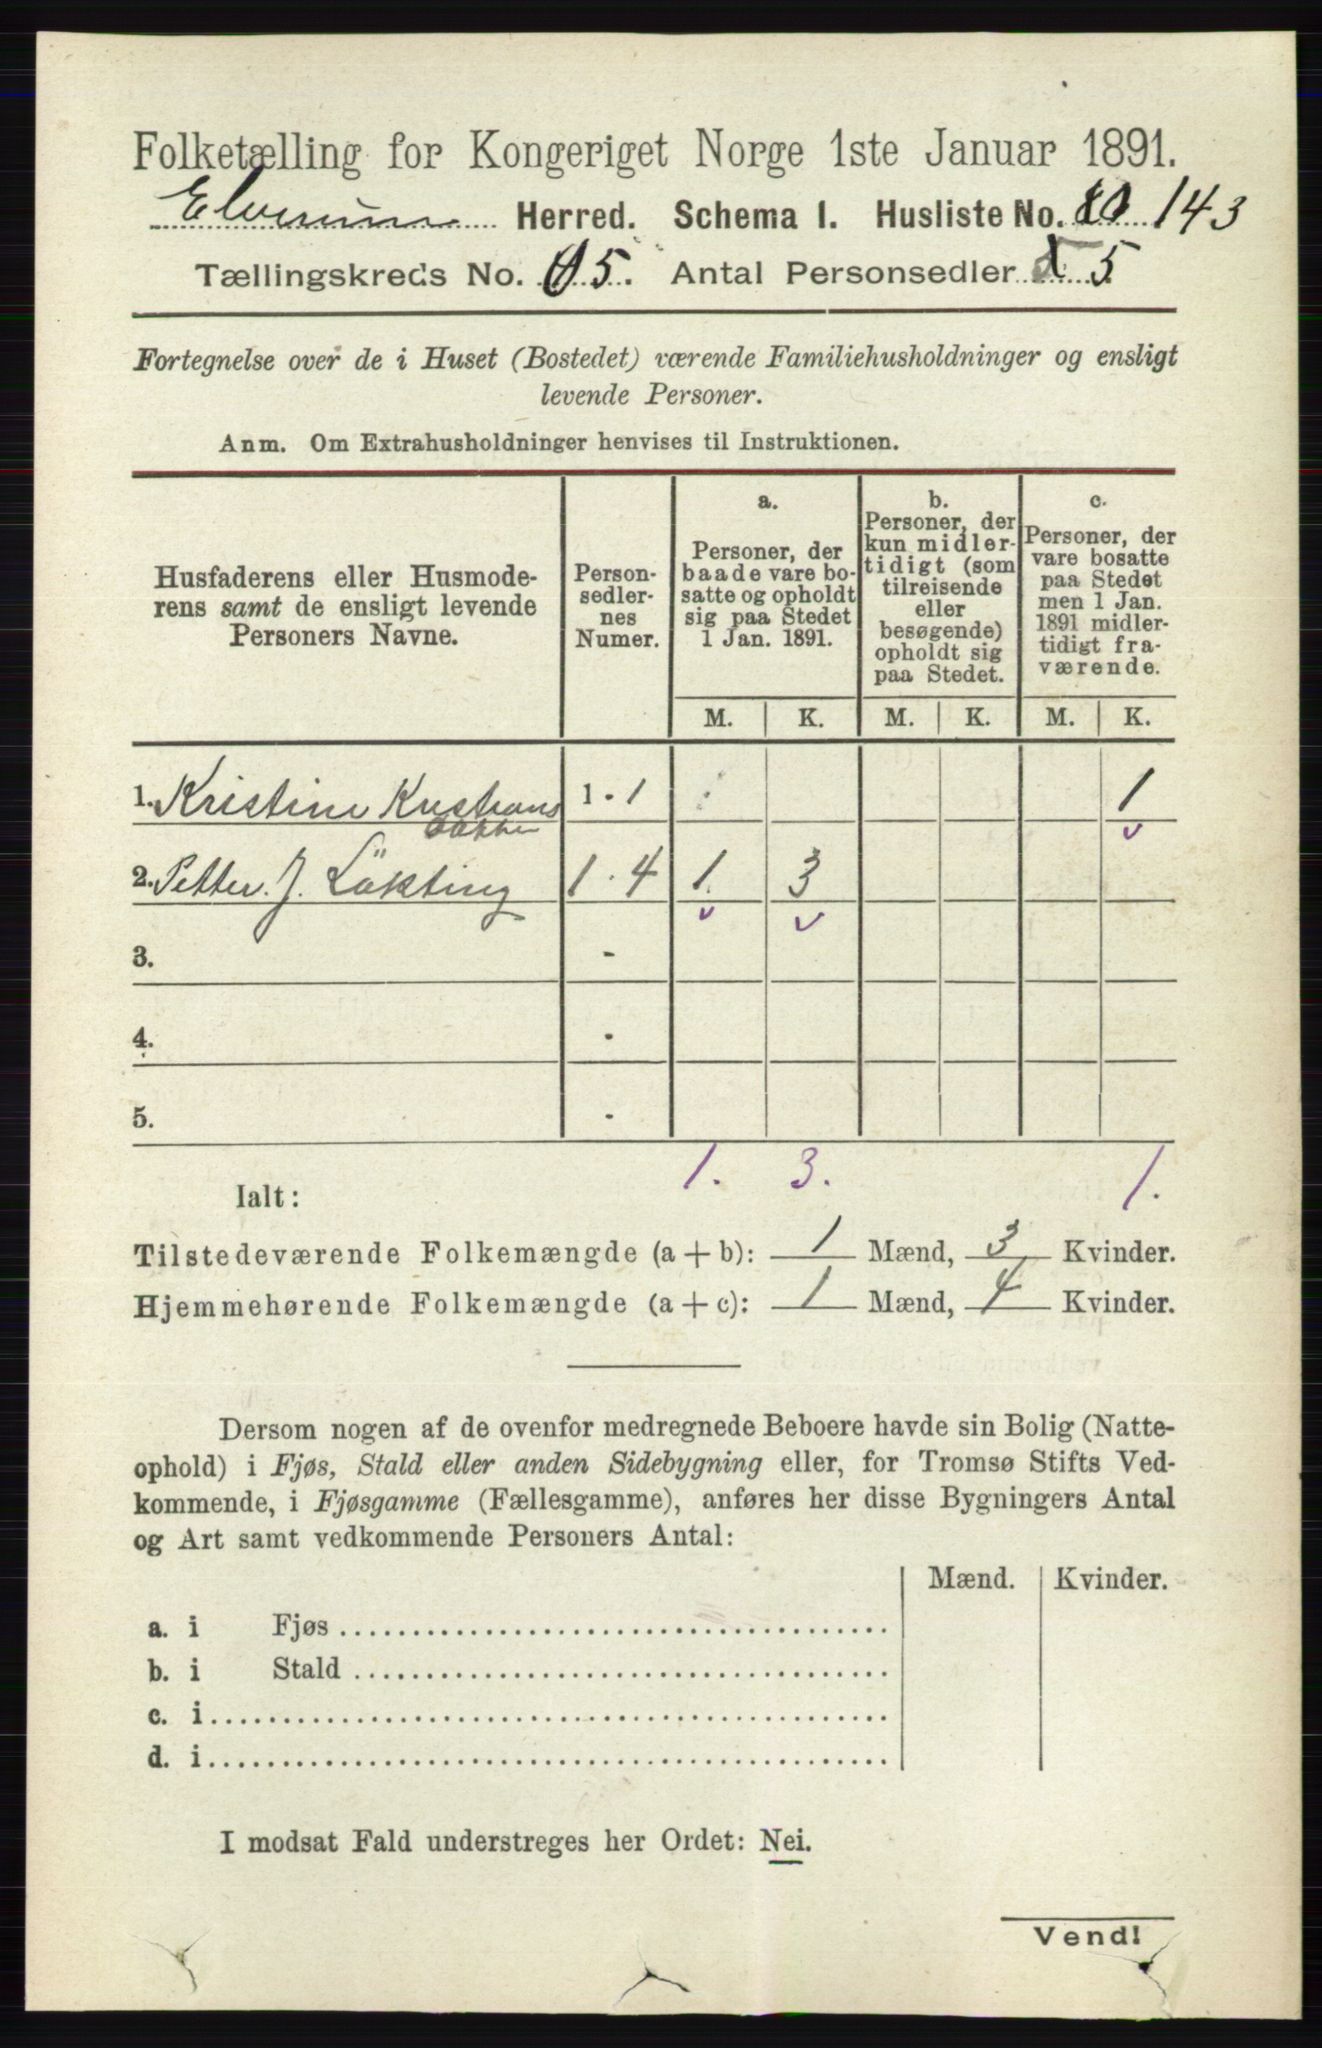 Folketælling for Kongeriget Norge 1ste Januar 1891.
Elverum Herred. Schema 1. Husliste No. 143
Tællingskreds No. 5. Antal Personsedler 5
Fortegnelse over de i Huset (Bostedet) værende Familiehusholdninger og ensligt
levende Personer.
Anm. Om Extrahusholdninger henvises til Instruktionen.
Husfaderens eller Husmode-
rens samt de ensligt levende
Personers Navne.
Person-
sedler-
nes
Numer.
a.
Personer, der
baade vare bo-
satte og opholdt
sig paa Stedet
1 Jan. 1891.
b.
Personer, der
kun midler-
tidigt (som
tilreisende
eller
besøgende)
opholdt sig
paa Stedet.
c.
Personer, der
vare bosatte
paa Stedet
men 1 Jan.
1891 midler-
tidigt fra-
værende.
M. K. M. K. M. K.
1. Kristine Kristians 1 - 1 1
2. Petter. J. Løkting 1 - 4 1. 3
3. -
4. -
5. -
1. 3. 1.
Ialt:
Tilstedeværende Folkemængde (a + b): 1 Mænd, 3 Kvinder.
Hjemmehørende Folkemængde (a + c): 1 Mænd, 4 Kvinder.
Dersom nogen af de ovenfor medregnede Beboere havde sin Bolig (Natte-
ophold) i Fjøs, Stald eller anden Sidebygning eller, for Tromsø Stifts Ved-
kommende, i Fjøsgamme (Fællesgamme), anføres her disse Bygningers Antal
og Art samt vedkommende Personers Antal:
Mænd. Kvinder.
a. i Fjøs
b. i Stald
c. i
d. i
I modsat Fald understreges her Ordet: Nei.
Vend!